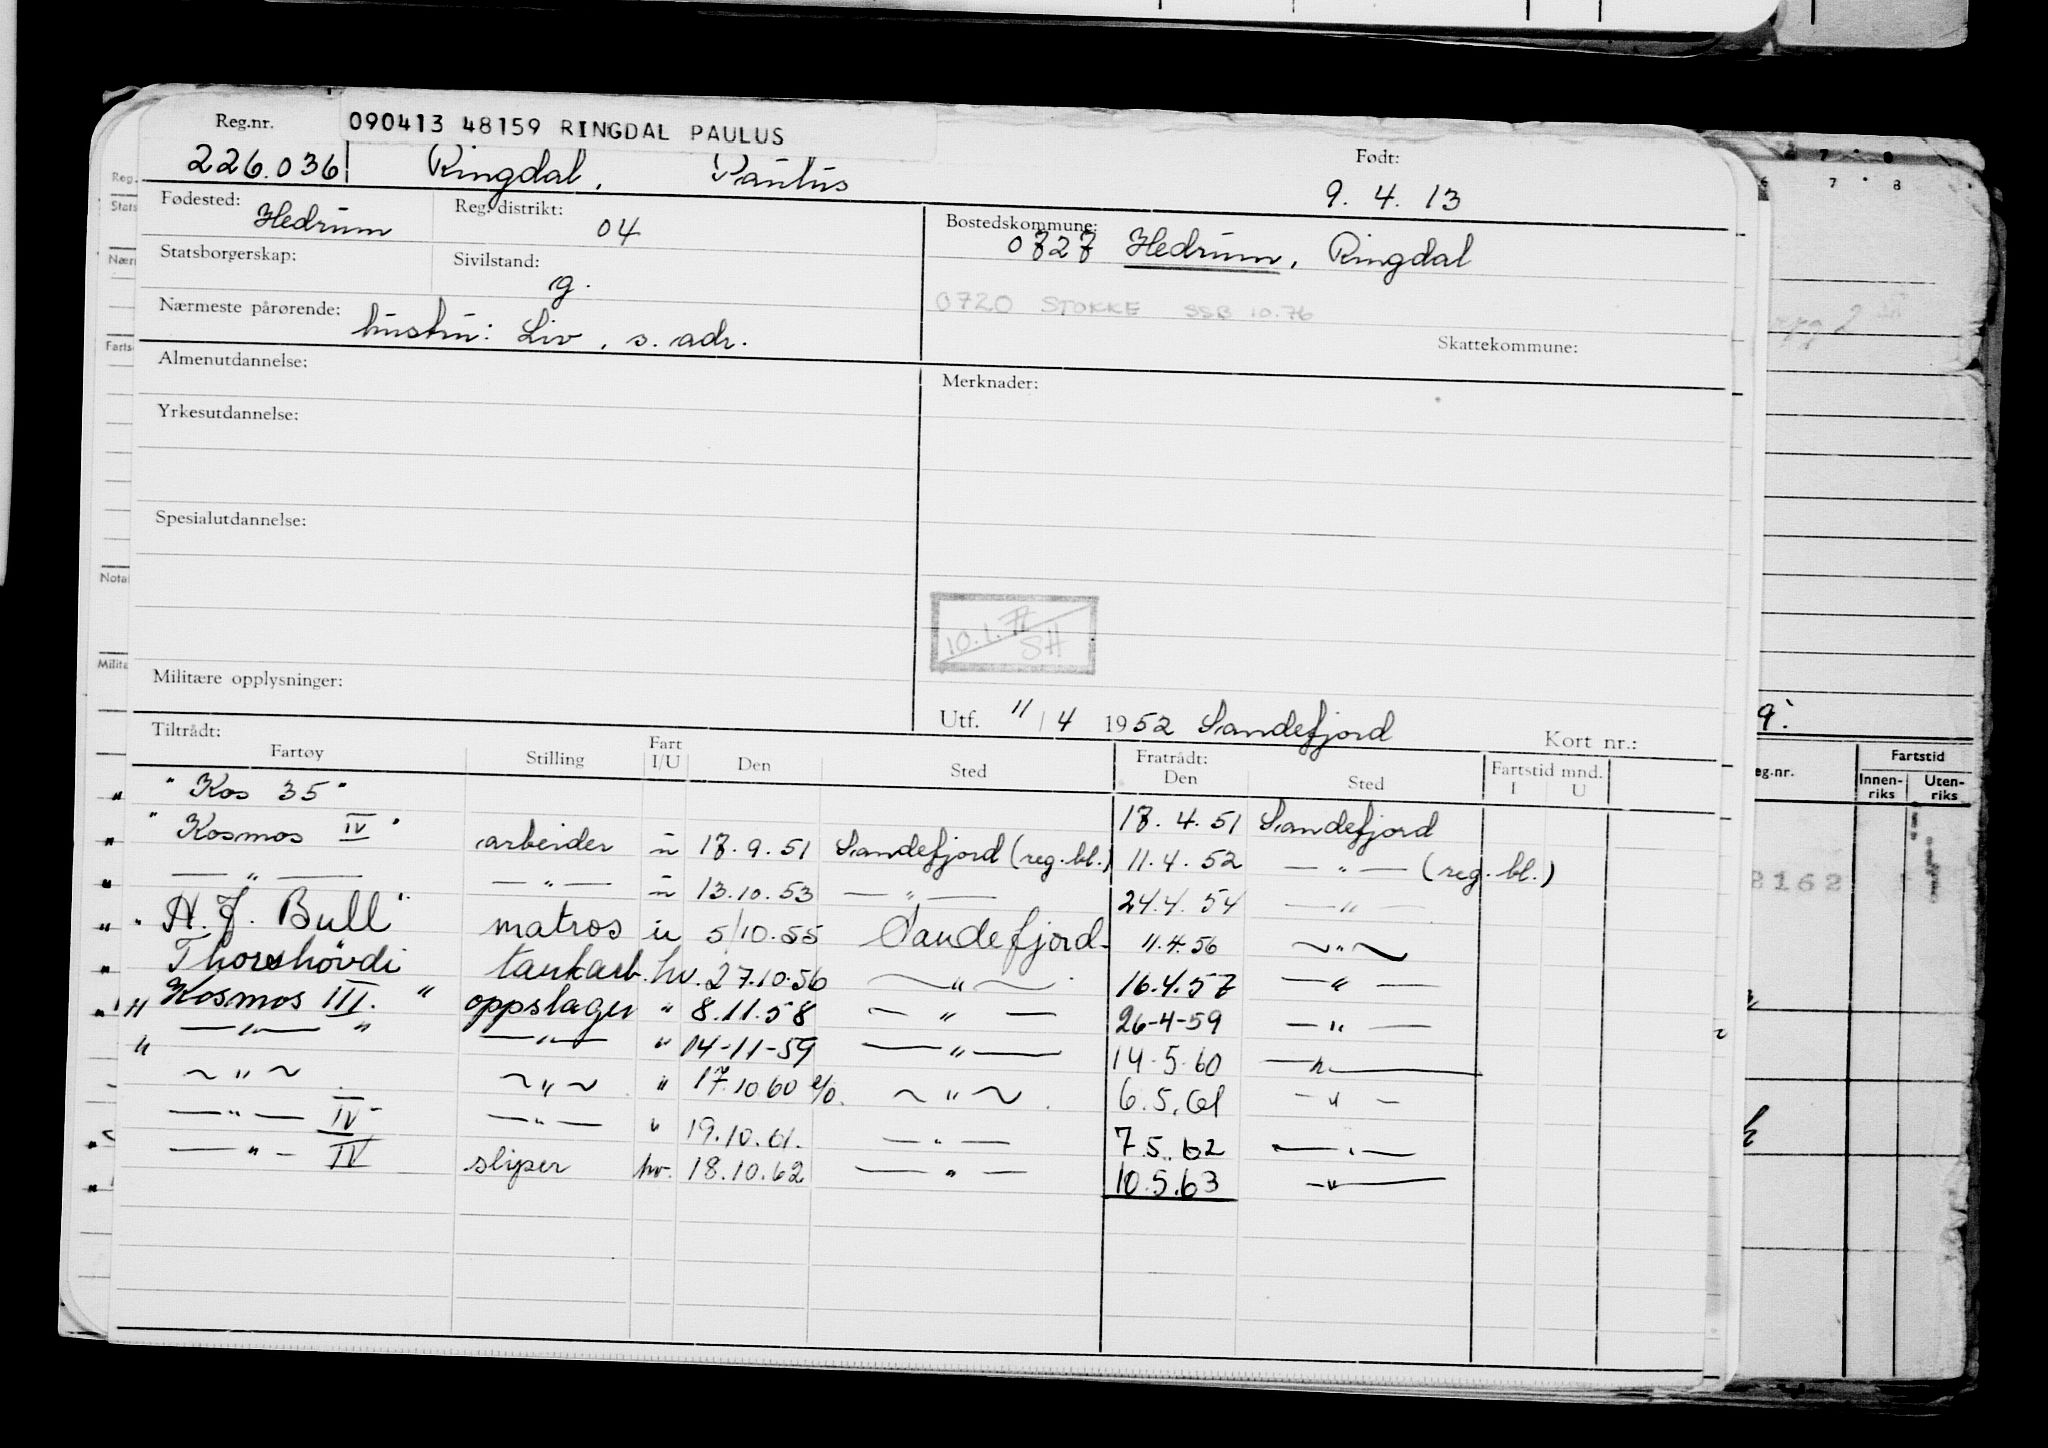 Reg.nr. 090413 48159 RINGDAL PAULUS
226.036 Ringdal, Paulus
Født: 9. 4. 13
Fødested: Hedrum
Reg. distrikt: 04
Bostedskommune: 0727 Hedrum, Ringdal
Statsborgerskap:
Sivilstand: g.
0720 STOKKE SSB 10.76
Nærmeste pårørende: hustru: Liv, s. adr.
Skattekommune:
Almenutdannelse:
Merknader:
Yrkesutdannelse:
Spesialutdannelse:
SH
Militære opplysninger:
Utf. 11/4 1952 Sandefjord
Kort nr.:
Tiltrådt:
Fartøy Stilling Fart I/U Den Sted Fratrådt: Den Sted Fartstid mnd. I U
" Kos 35 " 17. 4. 51 Sandefjord
" Kosmos IV " arbeider u 17. 9. 51 Sandefjord (reg. bl.) 11. 4. 52 — " — (reg. bl.)
— " — — " — u 13.10.53 — " — 24.4. 54 — " —
" A. J. Bull " matros u 5/10.55 Sandefjord 11.4.56 ~ " ~
Thorshövdi tankarb. hv. 27.10.56 ~ " ~ 16.4.57 — " —
" Kosmos III. " oppslager " 8.11.58 — " — 26-4-59 — " —
" — " — " — " — " 14-11-59 — " — 14.5.60 — " —
~ " ~ ~ " ~ " 17.10 60 ~ " ~ 6.5.61 — " —
— " — IV — " — " 19.10.61. — " — 7.5.62 — " —
— " — IV sliper hv. 18.10.62 — " — 10.5.63 — " —
Fartstid
Innen-riks Uten-riks